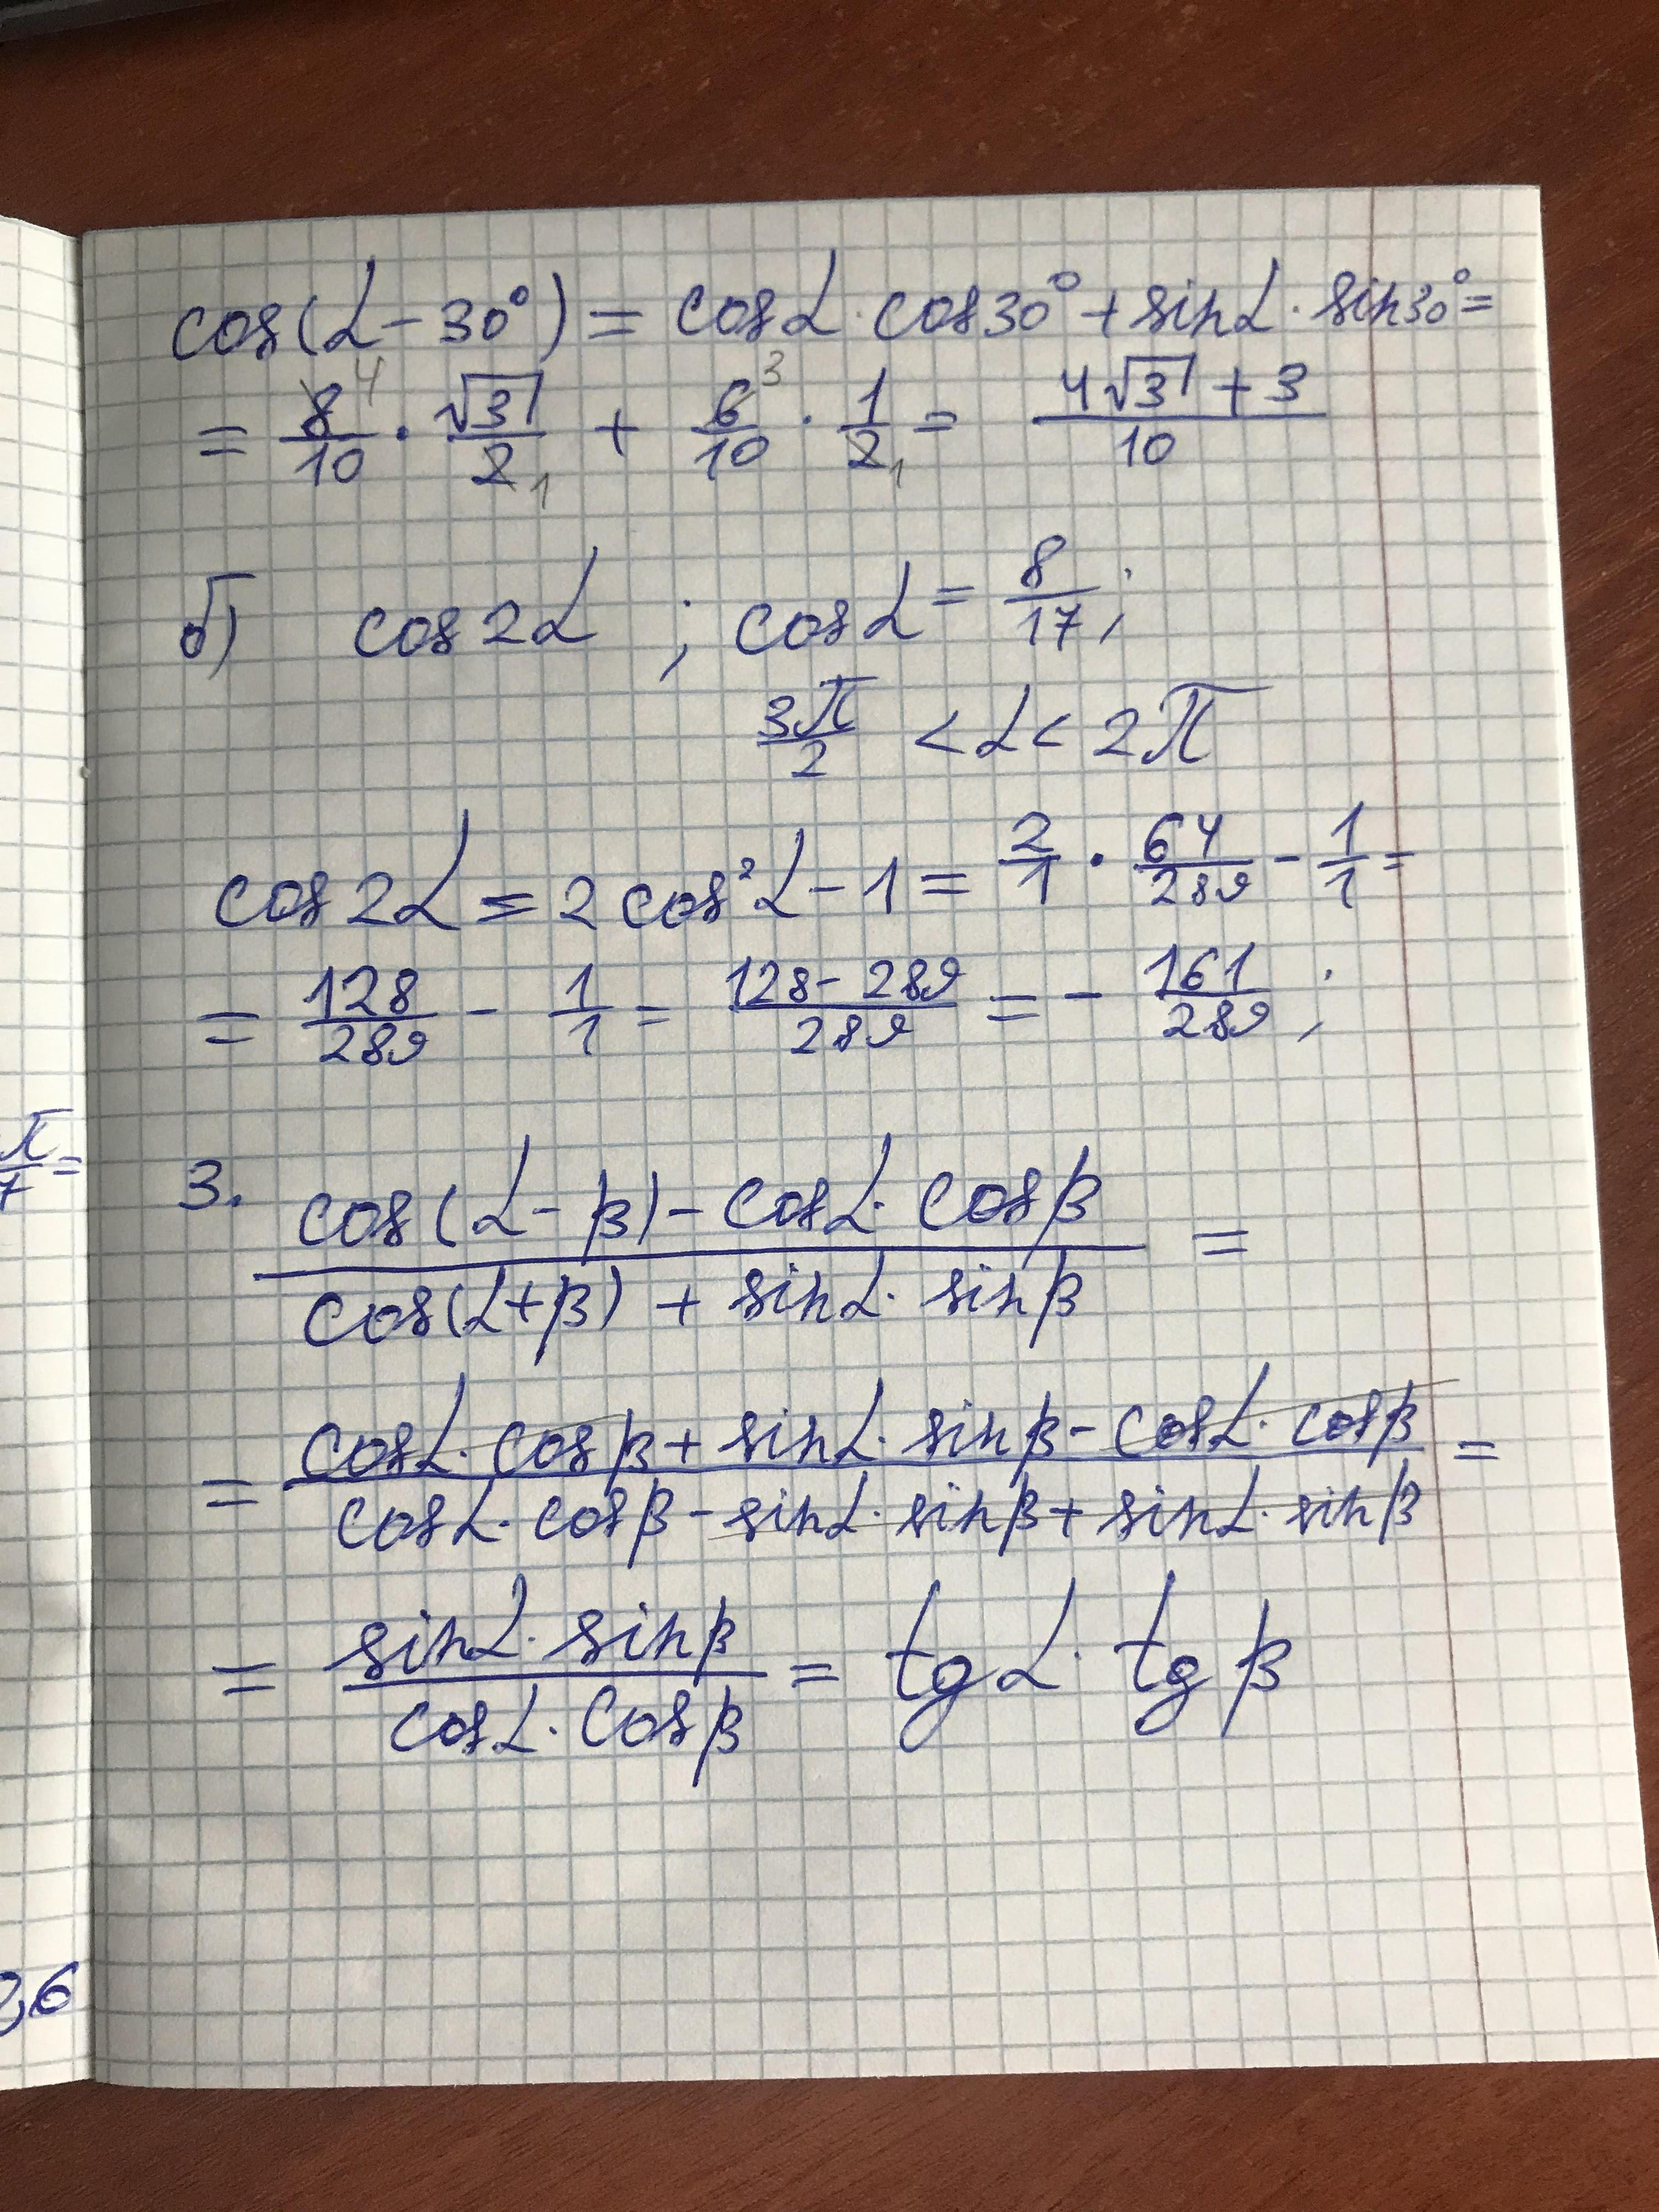 cos(α-30°) = cosα · cos30° + sinα · sin30° =
= 8/10 4 · √3/2 1 + 6/10 3 · 1/2 1 = (4√3 + 3)/10
б) cos2α ; cosα = 8/17 ;
3π/2 < α < 2π
cos2α = 2cos²α - 1 = 2/1 · 64/289 - 1/1 =
= 128/289 - 1/1 = (128 - 289)/289 = - 161/289 ;
π/7 =
3. (cos(α-β) - cosα · cosβ)/(cos(α+β) + sinα · sinβ) =
= (cosα · cosβ + sinα · sinβ - cosα · cosβ)/(cosα · cosβ - sinα · sinβ + sinα · sinβ) =
= (sinα · sinβ)/(cosα · cosβ) = tgα · tgβ
,6